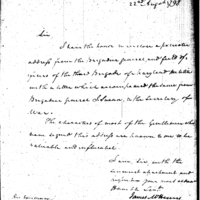 22d August 1798
Sir
I have the honor to inclose a private
address from the Brigadier general, and field of
ficers of the third Brigade of Maryland militia
with a letter which accompanied the same from
Brigadier general to the Secretary of
War.
The characters of most of the Gentlemen who
have signed this address are known to me to be
valuable and influential.
I am, Sir, with the
sincerest and
respect your most obedient
Humble Servt
James McHenry